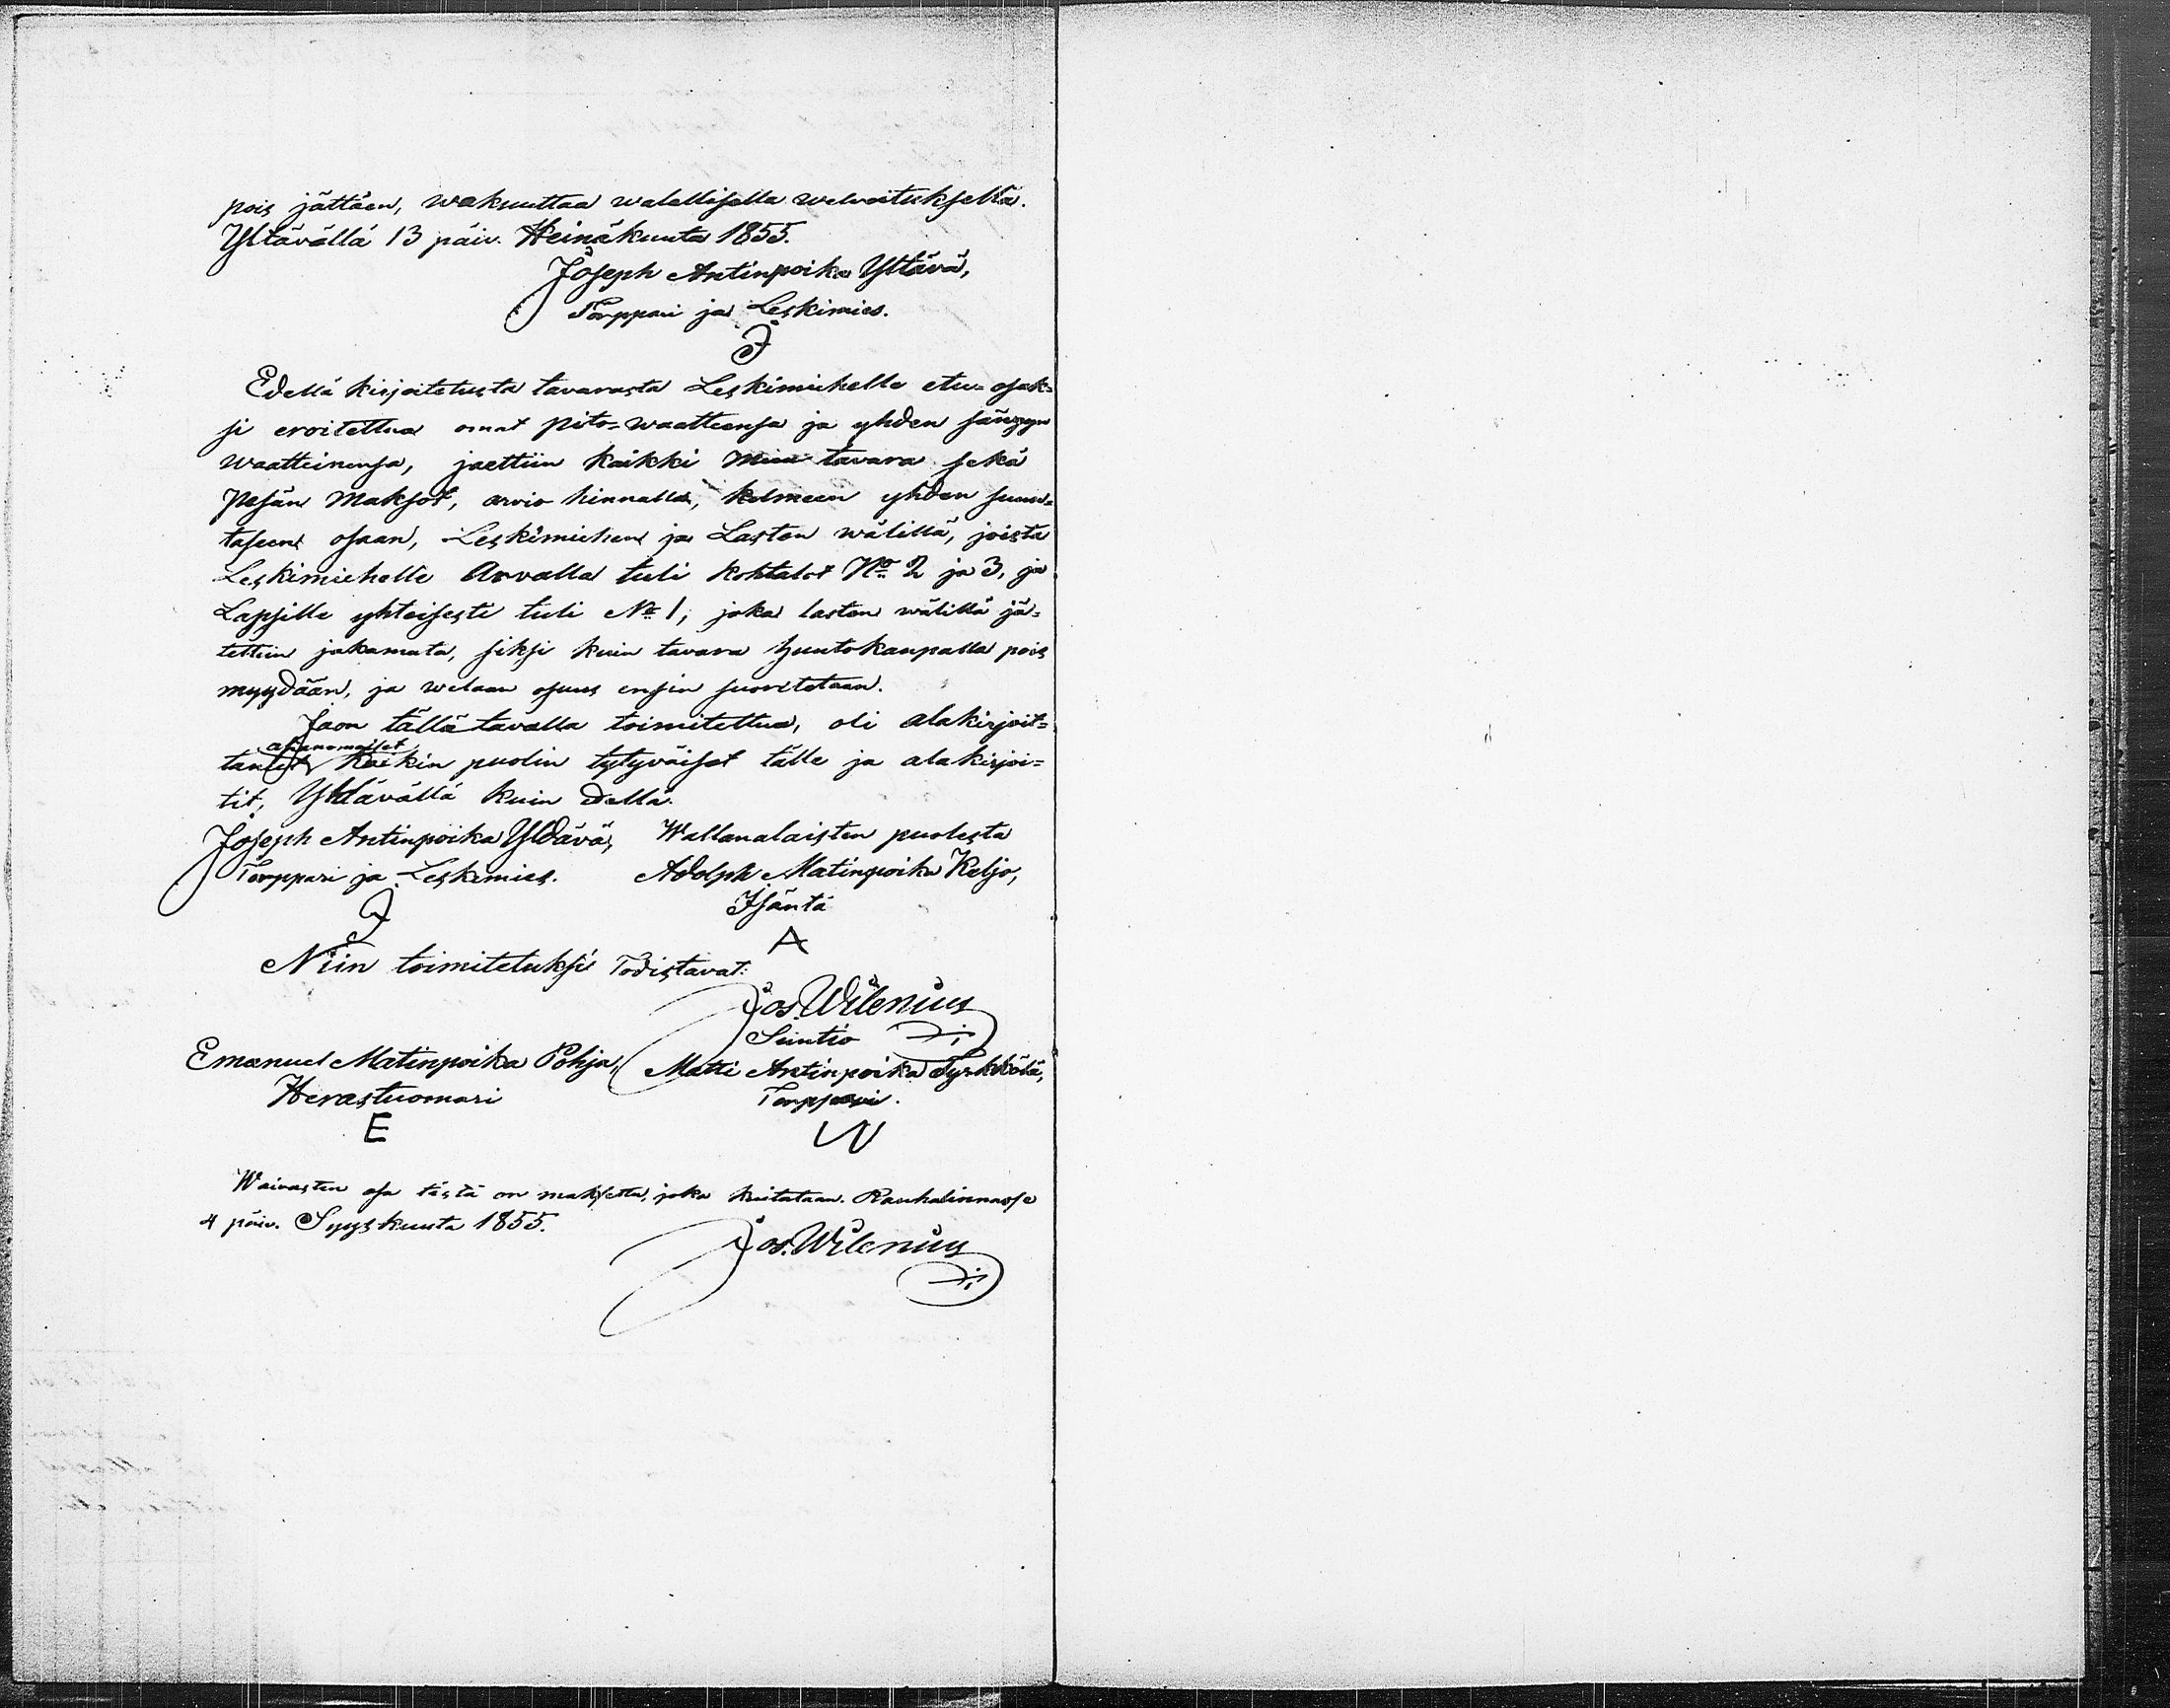 pois jättäen, wakuuttaa walallisella welvoituksella.
Yltävällä 13 päiv. Heinäkuuta 1855.
Joseph Antinpoika Yltävä,
Torppari ja Leskimies.
J
Edellä kirjoitetusta tavarasta Leskimiehelle etu-osak=
si eroitettua omat pito=waatteensa ja yhden sängyn
waatteinensa, jaettiin kaikki muu tavara sekä
Pesän maksot, arvio hinnalla, kolmeen yhden suun=
taseen osaan, Leskimiehen ja Lasten wälillä, joista
Leskimiehelle Arvalla tuli kohtalot No 2 ja 3, ja
Lapsille yhteisesti tuli No 1, joka lasten wälillä jä=
tettiin jakamata, siksi kuin tavara huutokaupalla pois
myydään, ja welaan osuus ensin suoritetaan.
Jaon tällä tavalla toimitettua, oli alakirjoit=
asianomaiset
tanut kaikin puolin tytyväiset tälle ja alakirjoi=
tit, Yldävällä kuin edellä.
Joseph Antinpoika Yldävä, Wallanalaisten puolesta
Torppari ja Leskimies. Adolph Matinpoika Keljo,
J Isäntä
A
Niin toimitetuksi Todistavat:
Jos. Wilenius
Suntio
Emanuel Matinpoika Pohja, Matti Antinpoika Tyrkkölä,
Herastuomari Torppari.
E W
Waivasten osa tästä on maksettu, joka kuitataan. Rauhalinnassa
4 päiv. Syyskuuta 1855.
Jos. Wilenius